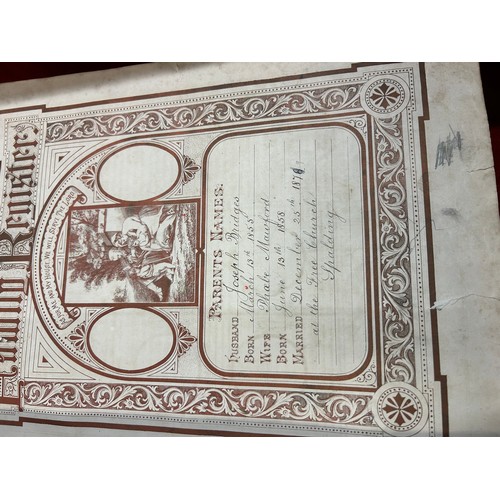 Family Register.
As for Me and My House, We will Serve the Lord.
PARENTS NAMES.
HUSBAND Joseph Bridges
BORN March 13rd 1855
WIFE Phebe Mawford
BORN June 15th 1858
MARRIED December 25th 1876
at the Free Church
Spalding